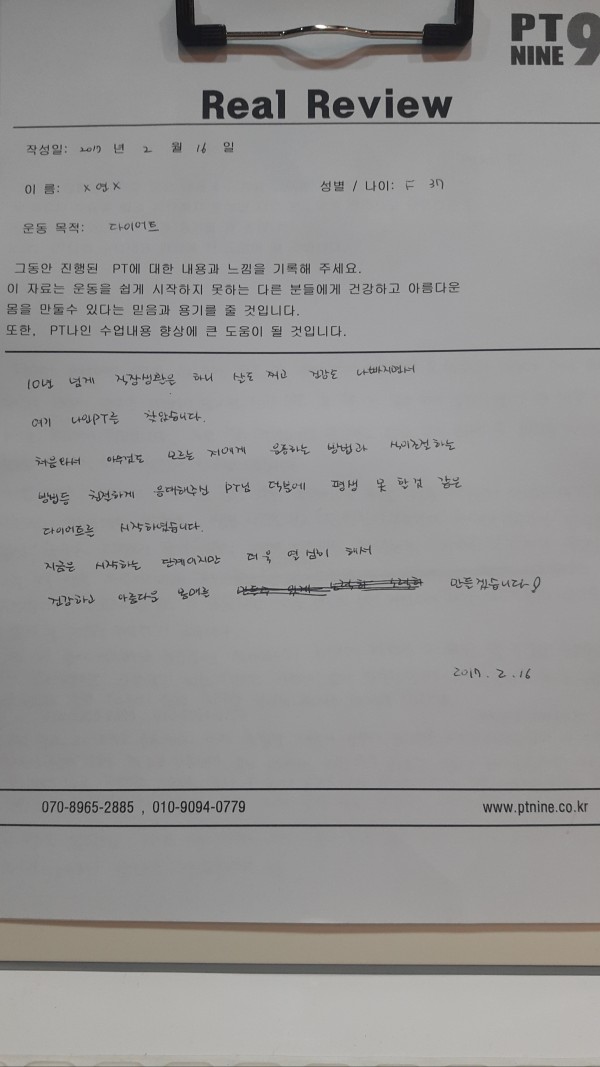 PT NINE 9
Real Review
작성일: 2017 년 2 월 16 일
이 름: x 연 x 성별 / 나이: F 37
운동 목적: 다이어트
그동안 진행된 PT에 대한 내용과 느낌을 기록해 주세요.
이 자료는 운동을 쉽게 시작하지 못하는 다른 분들에게 건강하고 아름다운
몸을 만들수 있다는 믿음과 용기를 줄 것입니다.
또한, PT나인 수업내용 향상에 큰 도움이 될 것입니다.
10년 넘게 직장생활은 하니 살도 찌고 건강도 나빠지면서
여기 나인PT를 찾았습니다.
처음와서 아무것도 모르는 저에게 운동하는 방법과 식이조절하는
방법등 친절하게 응대해주신 PT님 덕분에 평생 못 할것 같은
다이어트를 시작하였습니다.
지금은 시작하는 단계이지만 더욱 열심히 해서
건강하고 아름다운 몸매를 만들겠습니다!
2017. 2. 16
070-8965-2885 , 010-9094-0779 www.ptnine.co.kr